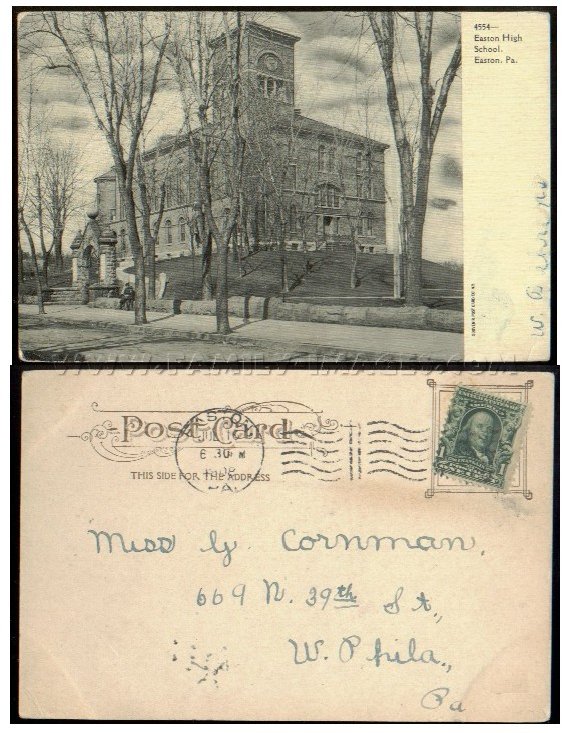 4554—
Easton High
School.
Easton, Pa.
WWW.FAMILY-IMAGES.COM
Post Card
6 30 M
PA.
1
THIS SIDE FOR THE ADDRESS
Miss G. Cornman,
669 N. 39th St.,
W. Phila.,
Pa